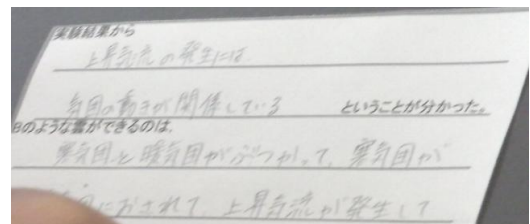 実験結果から
上昇気流の発生には
気団の動きが関係している ということが分かった。
Bのような雲ができるのは、
寒気団と暖気団がぶつかって、寒気団が
におされて、上昇気流が発生して